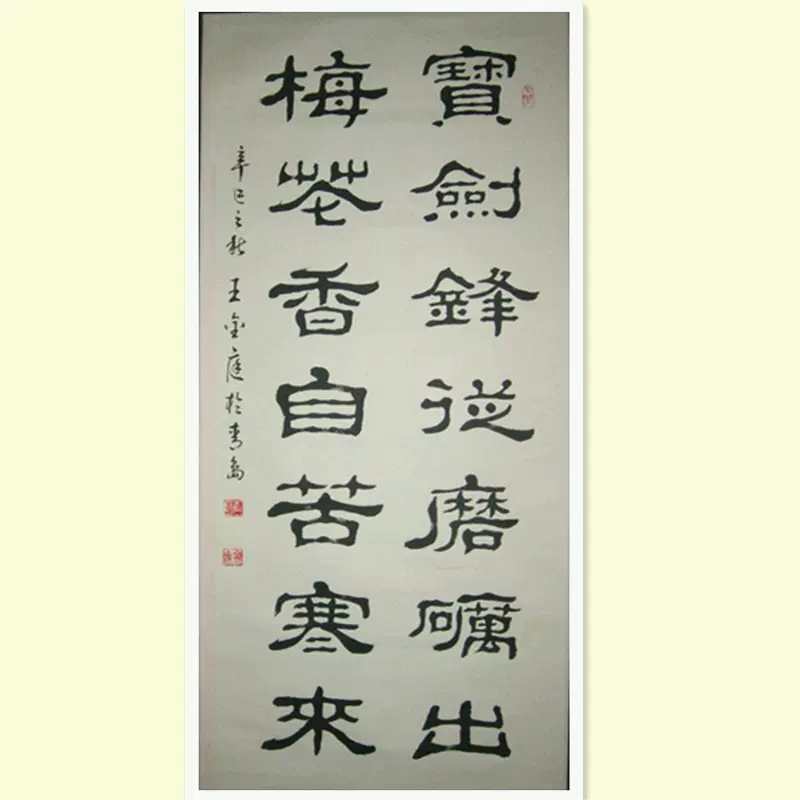 寶劍鋒從磨礪出
梅花香自苦寒來
辛巳之秋王金庭於青島